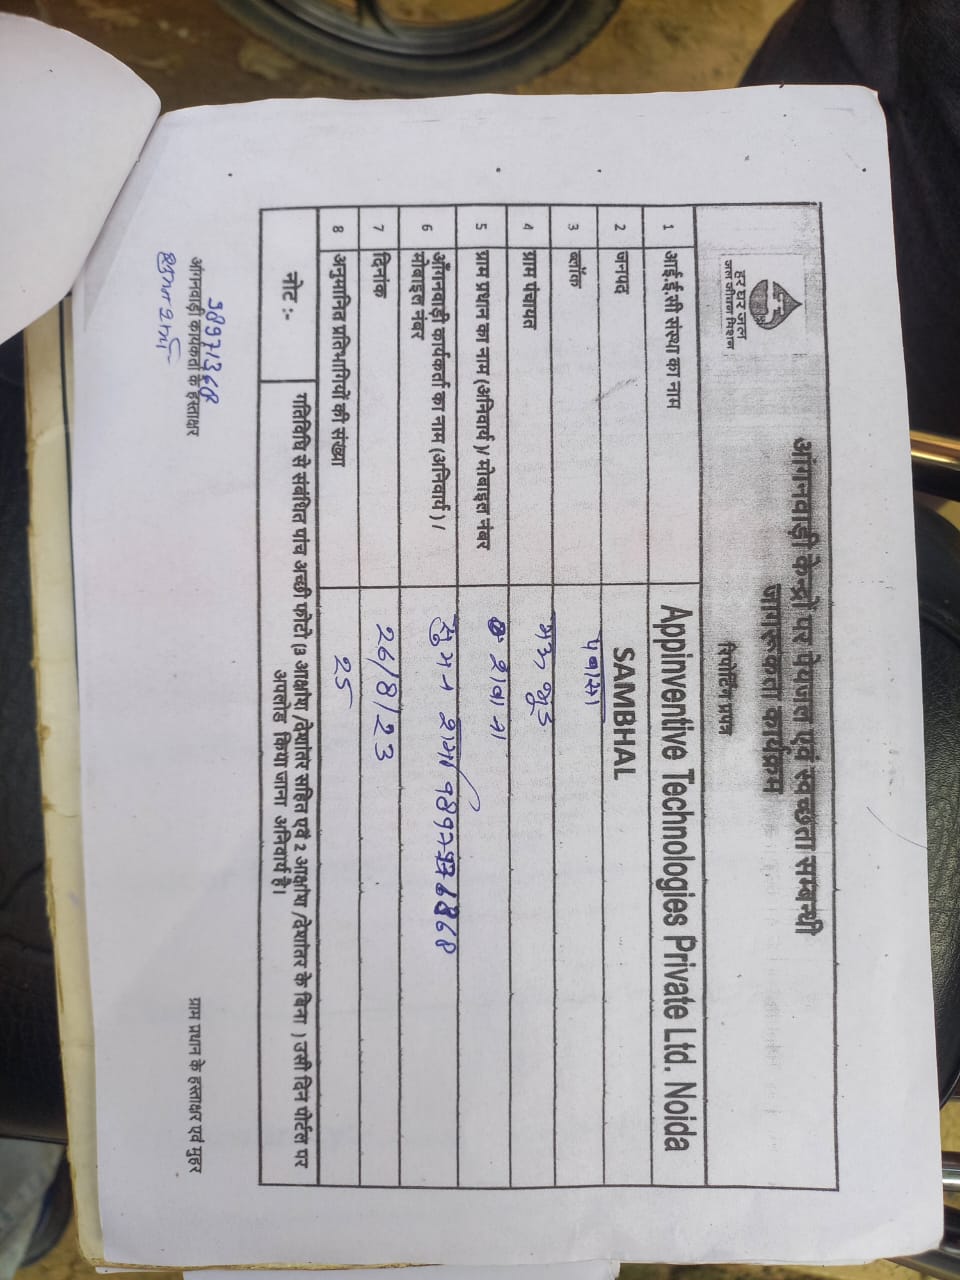 आंगनवाड़ी केन्द्रों पर पेयजल एवं स्वच्छता सम्बन्धी
जागरूकता कार्यक्रम
हर घर जल
जल जीवन मिशन
रिपोर्टिंग प्रपत्र
1 आई.ई.सी संस्था का नाम Appinventive Technologies Private Ltd. Noida
2 जनपद SAMBHAL
3 ब्लॉक पवासा
4 ग्राम पंचायत
5 ग्राम प्रधान का नाम (अनिवार्य )/ मोबाइल नंबर
6 आँगनवाड़ी कार्यकर्ता का नाम (अनिवार्य ) / सुमन शर्मा
मोबाइल नंबर
7 दिनांक 26/8/23
8 अनुमानित प्रतिभागियों की संख्या 25
नोट :- गतिविधि से संबंधित पांच अच्छी फोटो (3 आक्षांण /देशांतर सहित एवं 2 आक्षांण /देशांतर के बिना ) उसी दिन पोर्टल पर
अपलोड किया जाना अनिवार्य है।
आंगनवाड़ी कार्यकर्ता के हस्ताक्षर ग्राम प्रधान के हस्ताक्षर एवं मुहर